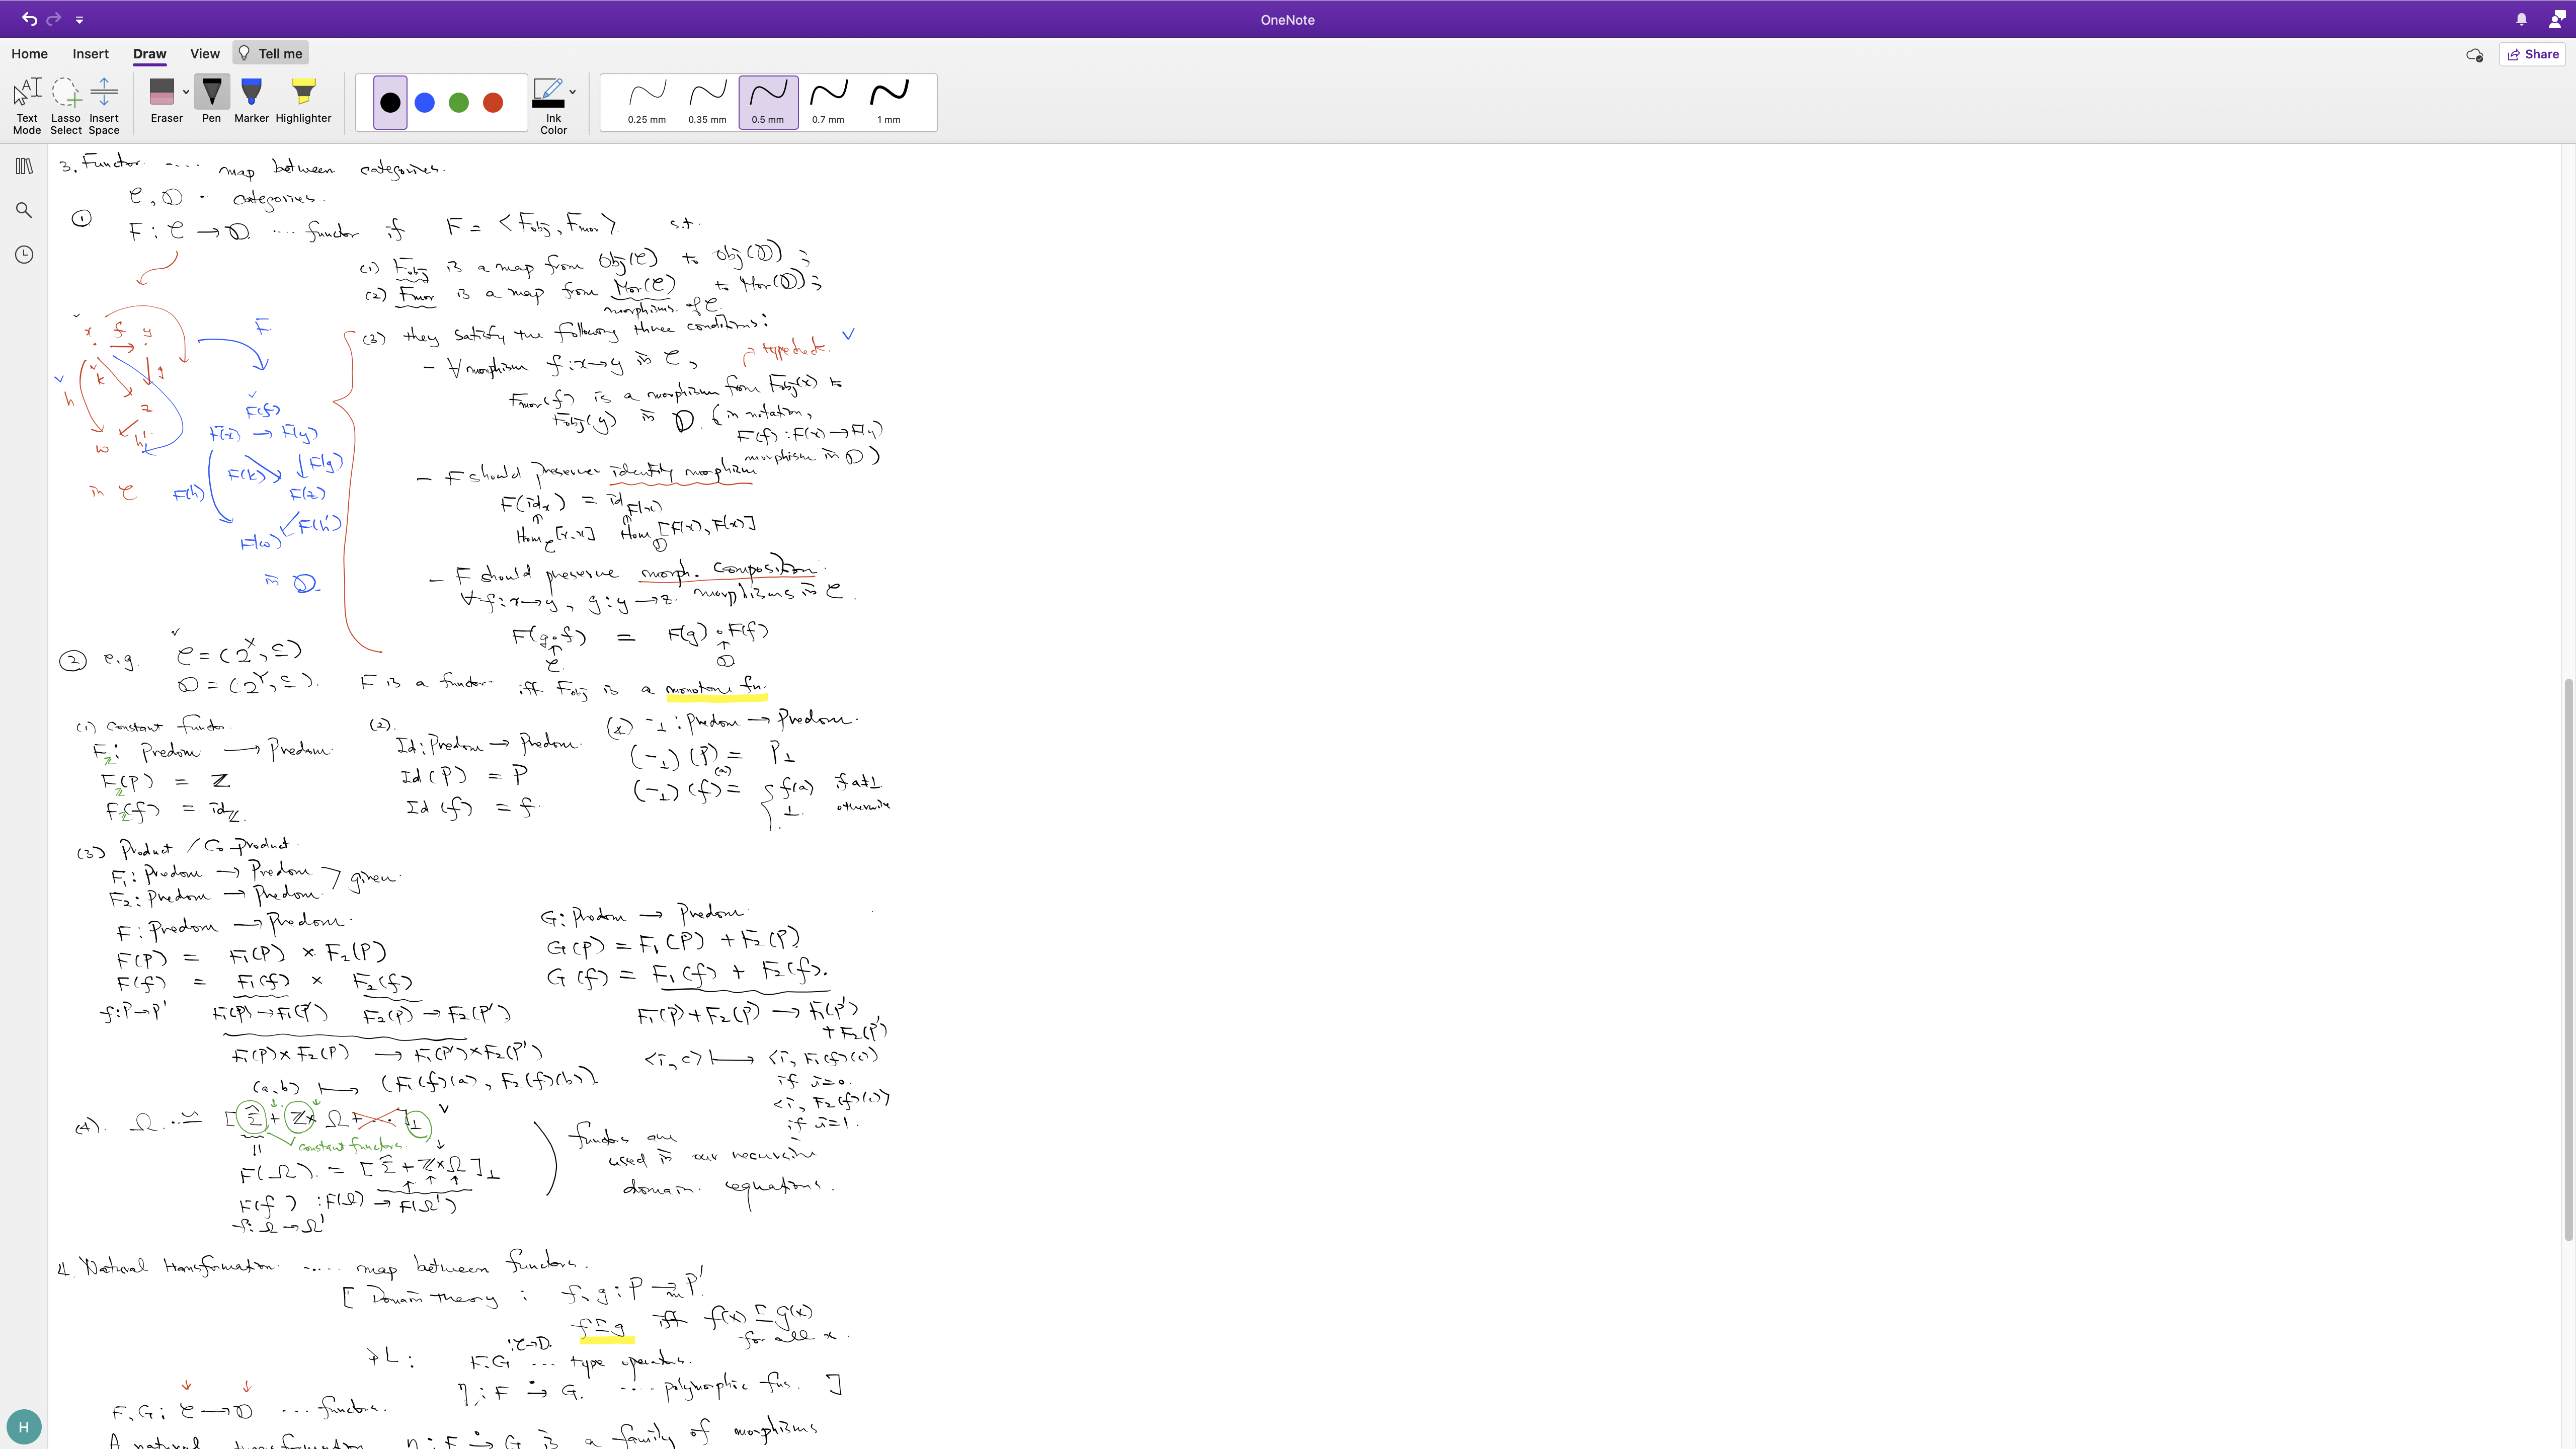 OneNote
Home Insert Draw View Tell me
Share
Text Mode
Lasso Select
Insert Space
Eraser
Pen
Marker
Highlighter
Ink Color
0.25 mm
0.35 mm
0.5 mm
0.7 mm
1 mm
3. Functor .... map between categories.
C, D .. categories.
① F : C → D ... functor if F = <Fobj, Fmor> s.t.
(1) Fobj is a map from Obj(C) to Obj(D) ;
(2) Fmor is a map from Mor(C) to Mor(D) ;
morphisms of C
(3) they satisfy the following three conditions:
- ∀morphism f : x→y in C,
typecheck.
Fmor(f) is a morphism from Fobj(x) to
Fobj(y) in D. (in notation,
F(f) : F(x) → F(y)
morphism in D)
x f y
k g
h z
w h'
in C
F
F(f)
F(x) → F(y)
F(k) F(g)
F(h) F(z)
F(w) F(h')
in D.
- F should preserve identity morphism
F(id_x) = id_F(x)
Hom_C[x,x] Hom_D[F(x), F(x)]
- F should preserve morph. composition.
∀f:x→y, g:y→z morphisms in C.
F(g∘f) = F(g)∘F(f)
C D
② e.g. C = (2^X, ⊆)
D = (2^Y, ⊆). F is a functor iff Fobj is a monotone fn.
(1) Constant functor.
F_Z : Predom → Predom
F_Z(P) = Z
F_Z(f) = id_Z.
(2).
Id : Predom → Predom.
Id(P) = P
Id(f) = f.
-⊥ : Predom → Predom.
(-⊥)(P) = P⊥
(-⊥)(f)(a) = { f(a) if a≠⊥
⊥ otherwise
(3) Product / Co-product.
F₁ : Predom → Predom
F₂ : Predom → Predom. > given.
F : Predom → Predom.
F(P) = F₁(P) × F₂(P)
F(f) = F₁(f) × F₂(f)
f:P→P' F₁(P)→F₁(P') F₂(P)→F₂(P')
F₁(P)×F₂(P) → F₁(P')×F₂(P')
(a,b) ⟼ (F₁(f)(a), F₂(f)(b)).
G : Predom → Predom
G(P) = F₁(P) + F₂(P)
G(f) = F₁(f) + F₂(f).
F₁(P)+F₂(P) → F₁(P')
+F₂(P')
<i, c> ⟼ <i, F₁(f)(c)>
if i=0.
<i, F₂(f)(c)>
if i=1.
(4). Ω ≃ [Σ̂ + Z×Ω + ...]⊥
constant functors.
F(Ω) = [Σ̂ + Z×Ω]⊥
F(f) : F(Ω) → F(Ω')
f: Ω → Ω'
functors are
used in our recursive
domain equations.
4. Natural transformation ..... map between functors.
[ Domain theory : f, g : P →m P'.
f ⊑ g iff f(x) ⊑ g(x)
for all x.
PL : F.G : C→D ... type operators.
η : F →̇ G. .... polymorphic fns. ]
F, G : C → D ... functors.
A natural transformation η : F →̇ G is a family of morphisms
H